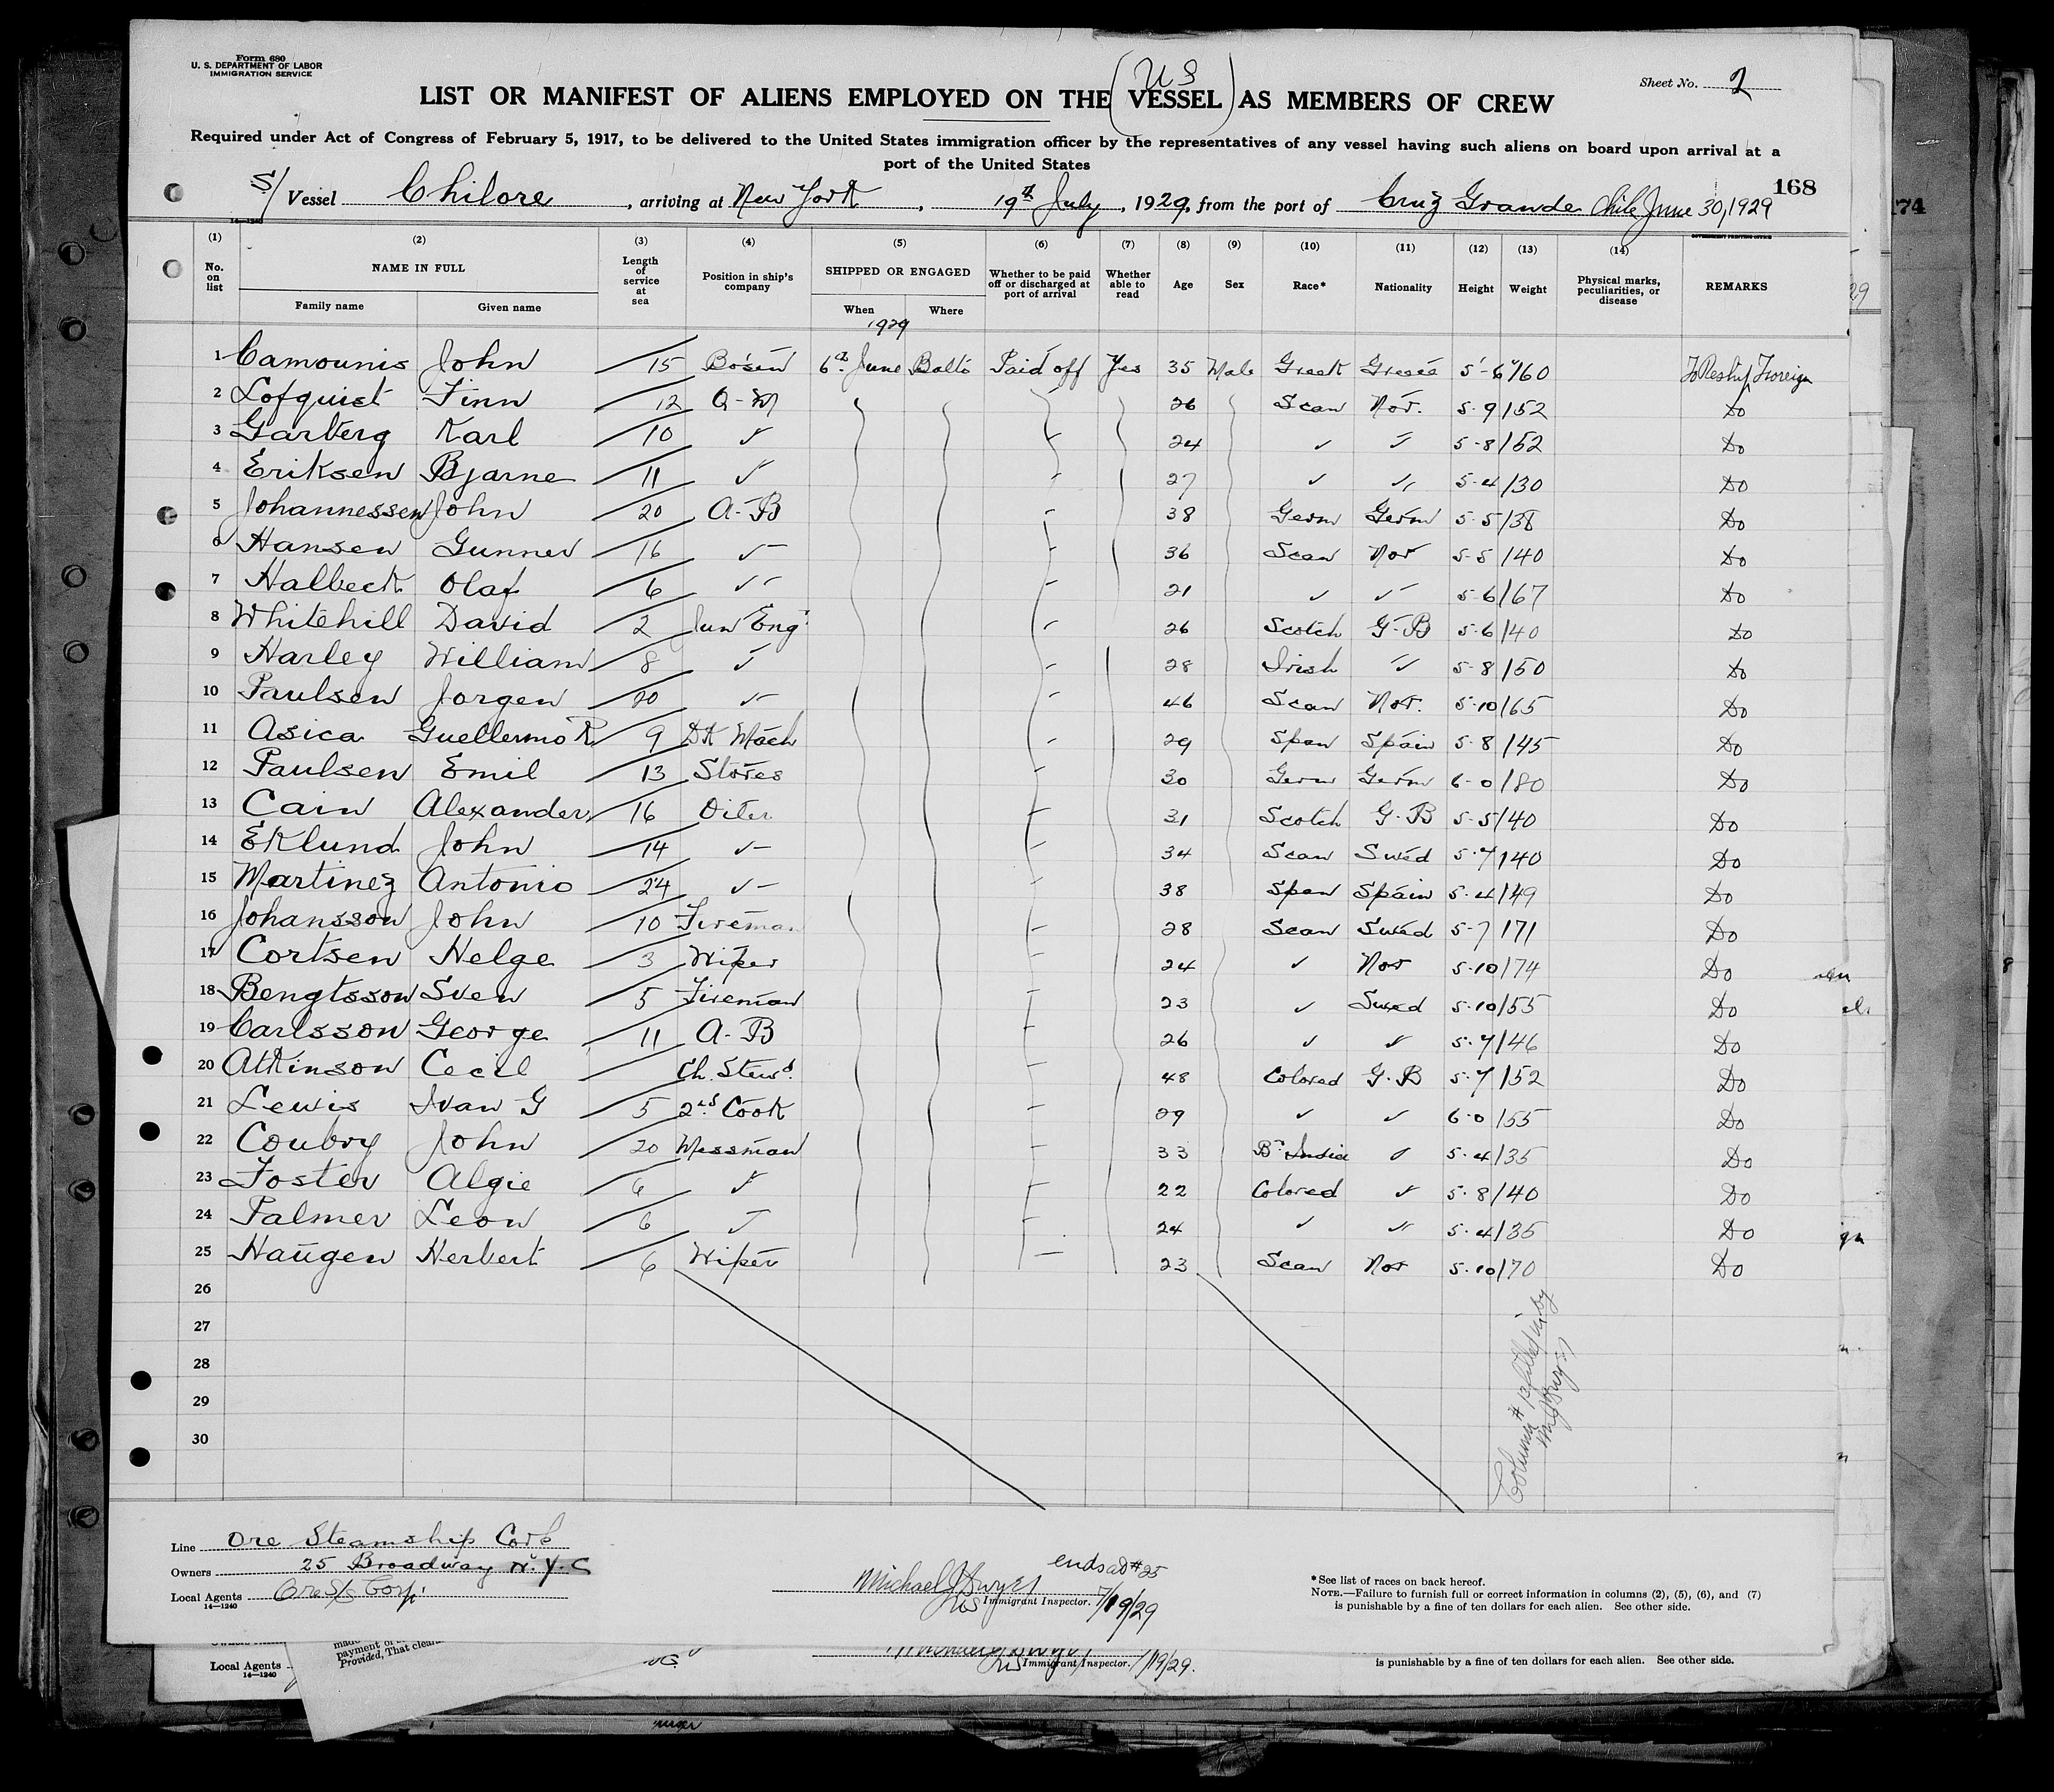 Form 680
U. S. DEPARTMENT OF LABOR
IMMIGRATION SERVICE
Sheet No. 2
(U S)
LIST OR MANIFEST OF ALIENS EMPLOYED ON THE VESSEL AS MEMBERS OF CREW
Required under Act of Congress of February 5, 1917, to be delivered to the United States immigration officer by the representatives of any vessel having such aliens on board upon arrival at a
port of the United States
168
174
S/ Vessel Chilore, arriving at New York, 19th July, 1929, from the port of Cruz Grande Chile June 30, 1929
14—1240
GOVERNMENT PRINTING OFFICE
(1) (2) (3) (4) (5) (6) (7) (8) (9) (10) (11) (12) (13) (14)
No. on list NAME IN FULL Family name Given name Length of service at sea Position in ship's company SHIPPED OR ENGAGED When Where Whether to be paid off or discharged at port of arrival Whether able to read Age Sex Race* Nationality Height Weight Physical marks, peculiarities, or disease REMARKS
1929
1 Camounis John 15 Bosun 6th June Balto Paid off Yes 35 Male Greek Greece 5'-6" 160 To Reship Foreign
2 Lofquist Finn 12 Q-M 26 Scan Nor. 5-9 152 Do
3 Garberg Karl 10 ✓ 24 ✓ ✓ 5-8 152 Do
4 Eriksen Bjarne 11 ✓ 27 ✓ ✓ 5-4 130 Do
5 Johannessen John 20 A-B 38 Germ Germ 5-5 138 Do
6 Hansen Gunner 16 ✓ 36 Scan Nor 5-5 140 Do
7 Halbeck Olaf 6 ✓ 21 ✓ ✓ 5-6 167 Do
8 Whitehill David 2 Jun Eng 26 Scotch G-B 5-6 140 Do
9 Harley William 8 ✓ 28 Irish ✓ 5-8 150 Do
10 Paulsen Jorgen 20 ✓ 46 Scan Nor. 5-10 165 Do
11 Asica Guellermo R 9 Dk Mach 29 Span Spain 5-8 145 Do
12 Paulsen Emil 13 Stores 30 Germ Germ 6-0 180 Do
13 Cain Alexander 16 Oiler 31 Scotch G-B 5-5 140 Do
14 Eklund John 14 ✓ 34 Scan Swed 5-7 140 Do
15 Martinez Antonio 24 ✓ 38 Span Spain 5-4 149 Do
16 Johansson John 10 Fireman 28 Scan Swed 5-7 171 Do
17 Cortsen Helge 3 Wiper 24 ✓ Nor 5-10 174 Do
18 Bengtsson Sven 5 Fireman 23 ✓ Swed 5-10 155 Do
19 Carlsson George 11 A-B 26 ✓ ✓ 5-7 146 Do
20 Atkinson Cecil Ch. Stewd. 48 Colored G-B 5-7 152 Do
21 Lewis Ivan G 5 2nd Cook 29 ✓ ✓ 6-0 155 Do
22 Coubry John 20 Messman 33 Br India ✓ 5-4 135 Do
23 Foster Algie 6 ✓ 22 Colored ✓ 5-8 140 Do
24 Palmer Leon 6 ✓ 24 ✓ ✓ 5-4 135 Do
25 Haugen Herbert 6 Wiper 23 Scan Nor 5-10 170 Do
26
27
28
29
30
Column #13 filled in by
Line Ore Steamship Corp
Owners 25 Broadway N.Y.C
Local Agents Ore S/S Corp.
14—1240
ends at #25
Michael J Dwyer
Immigrant Inspector. 7/19/29
*See list of races on back hereof.
NOTE.—Failure to furnish full or correct information in columns (2), (5), (6), and (7)
is punishable by a fine of ten dollars for each alien. See other side.
payment of
Provided, That
Local Agents
14—1240
Immigrant Inspector. 7/19/29.
is punishable by a fine of ten dollars for each alien. See other side.